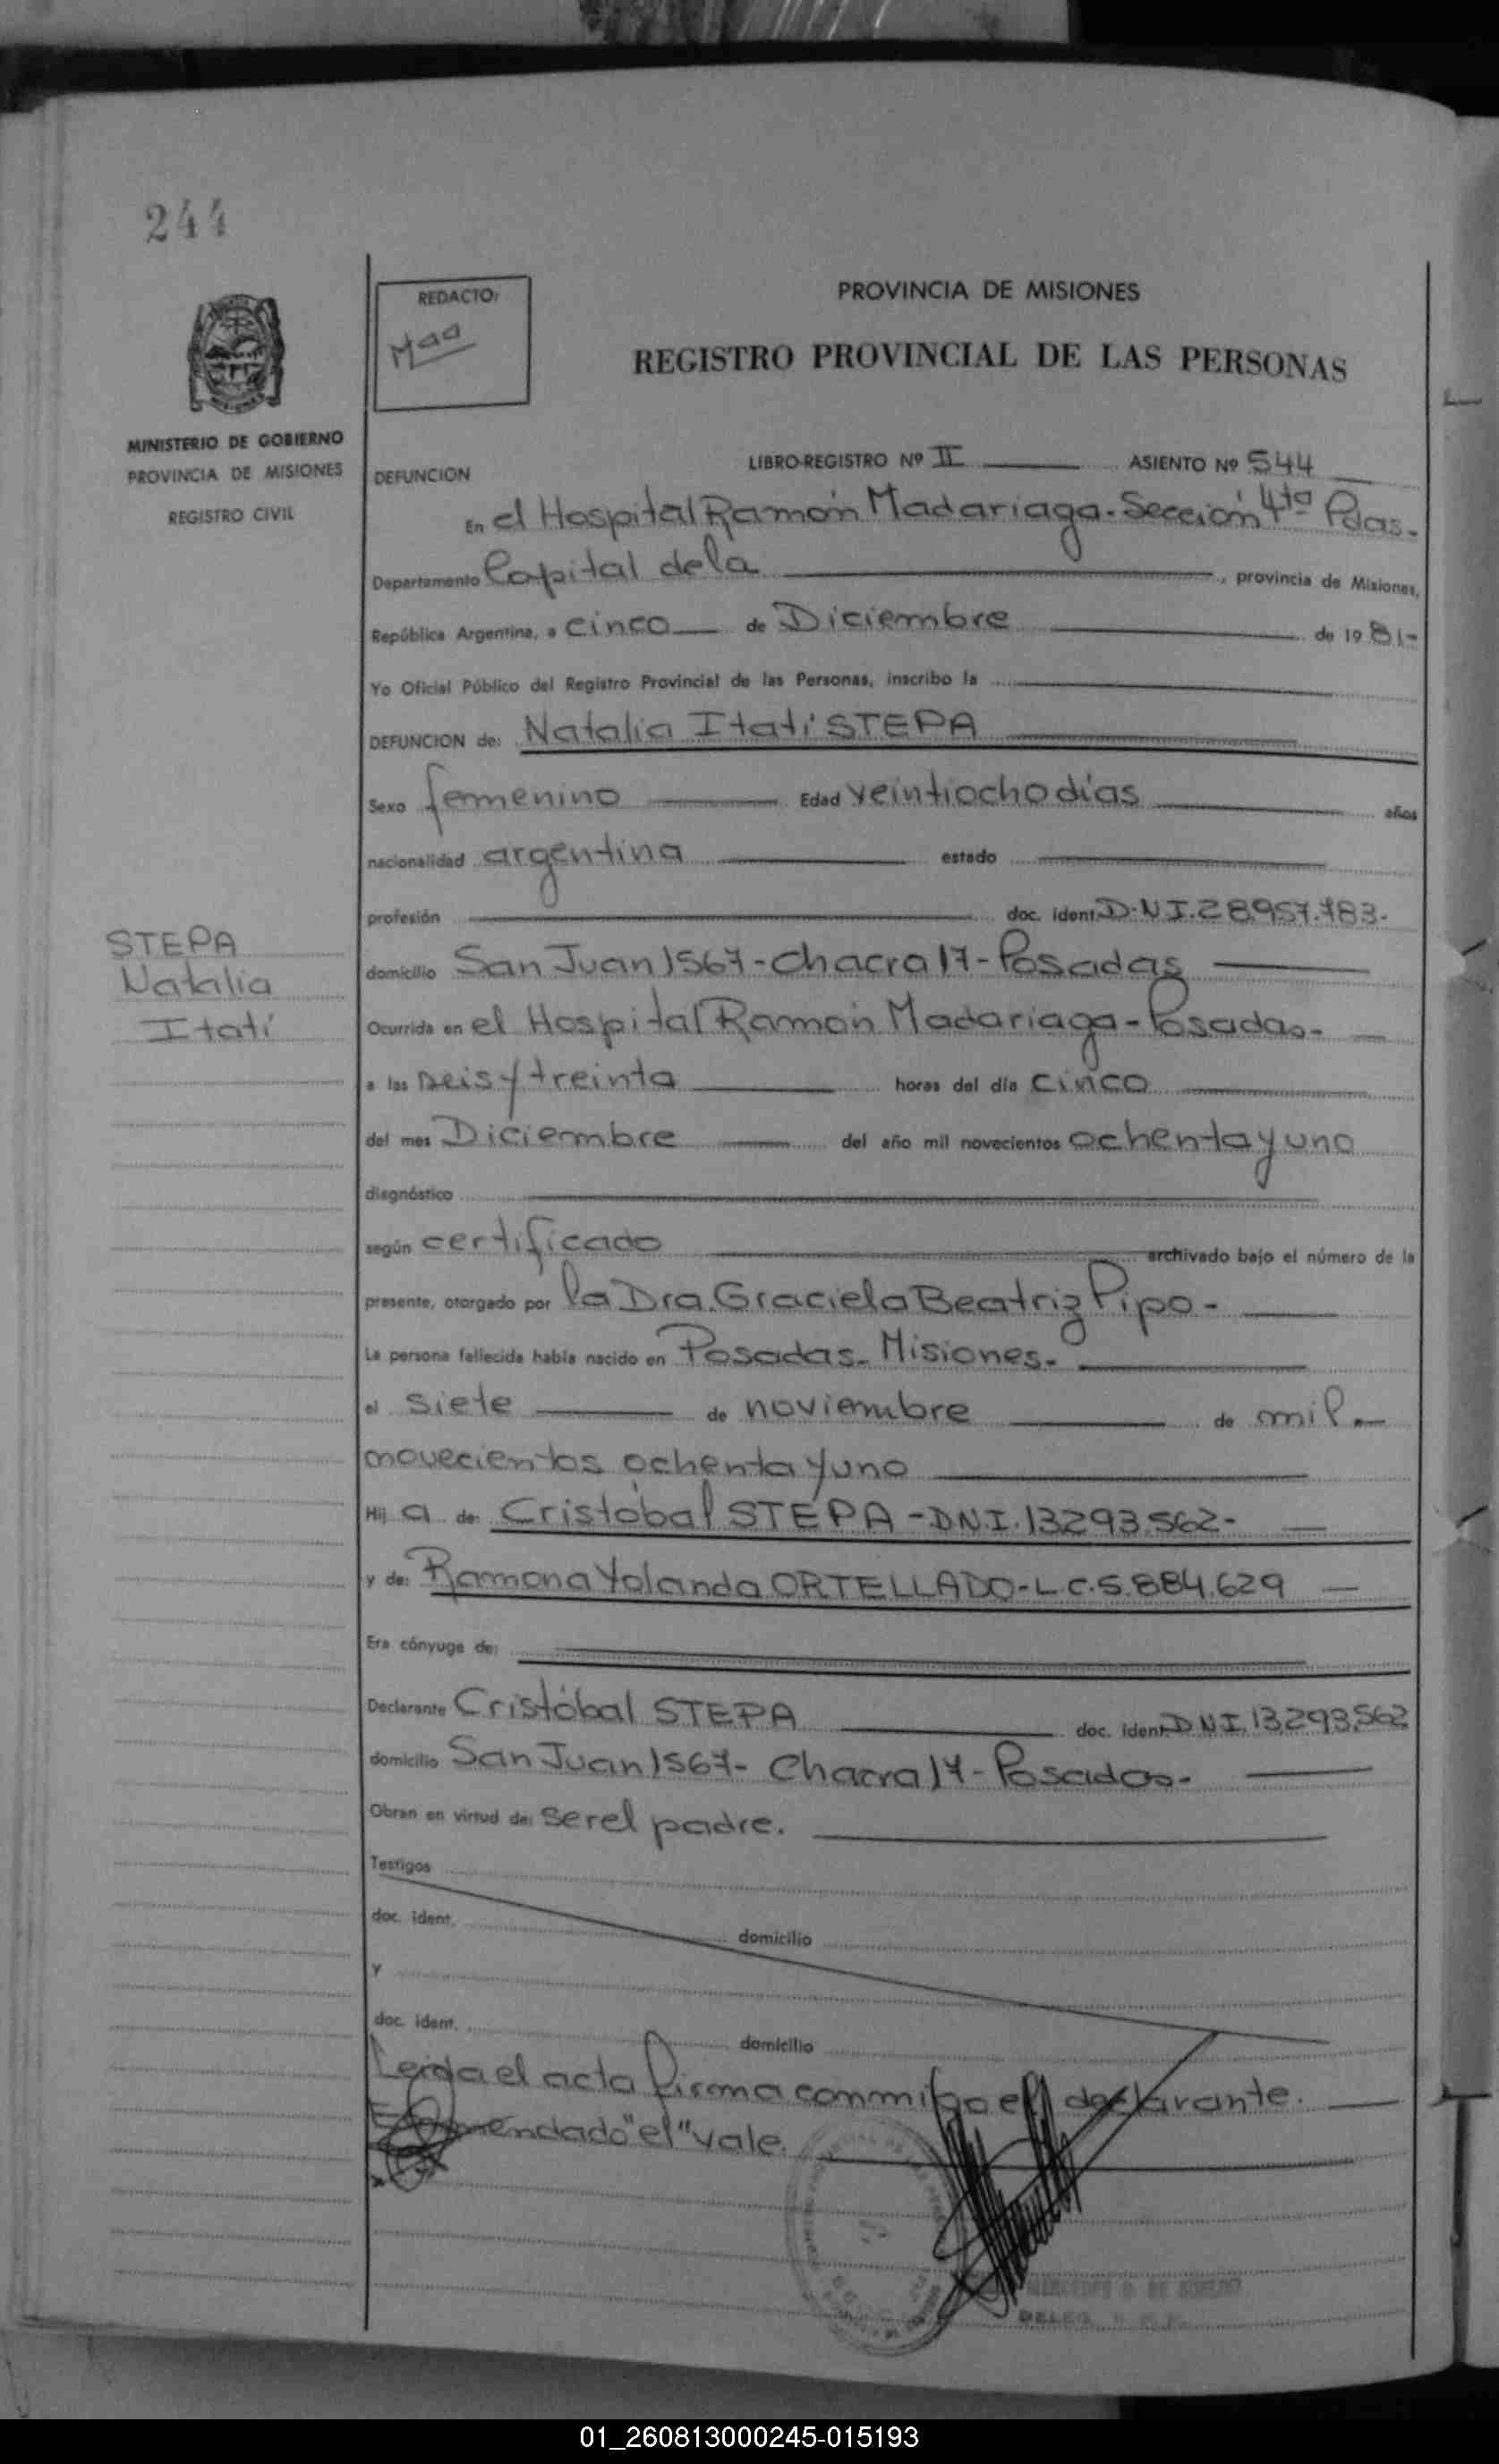 244
REDACTO:
Maa
PROVINCIA DE MISIONES
REGISTRO PROVINCIAL DE LAS PERSONAS
MINISTERIO DE GOBIERNO
PROVINCIA DE MISIONES
REGISTRO CIVIL
DEFUNCION
LIBRO-REGISTRO Nº II ASIENTO Nº 544
En el Hospital Ramón Madariaga - Sección 4ta Pdas.-
Departamento Capital de la, provincia de Misiones,
República Argentina, a cinco de Diciembre de 1981-
Yo Oficial Público del Registro Provincial de las Personas, inscribo la
DEFUNCION de: Natalia Itatí STEPA
Sexo femenino Edad veintiocho días años
nacionalidad argentina estado
profesión doc. ident. D.N.I. 28.957.783.-
STEPA
Natalia
Itatí
domicilio San Juan 1567 - Chacra 17 - Posadas
Ocurrida en el Hospital Ramón Madariaga - Posadas.-
a las seis y treinta horas del día cinco
del mes Diciembre del año mil novecientos ochenta y uno
diagnóstico
según certificado archivado bajo el número de la
presente, otorgado por la Dra. Graciela Beatriz Pipo -
La persona fallecida había nacido en Posadas - Misiones.-
el siete de noviembre de mil.-
novecientos ochenta y uno
Hij a de: Cristóbal STEPA - D.N.I. 13.293.562.-
y de: Ramona Yolanda ORTELLADO - L.C. 5.884.629
Era cónyuge de:
Declarante Cristóbal STEPA doc. ident. D.N.I. 13.293.562
domicilio San Juan 1567 - Chacra 17 - Posadas.-
Obran en virtud de: ser el padre.
Testigos
doc. ident. domicilio
y
doc. ident. domicilio
Leida el acta firma conmigo el declarante.
Enmendado "el" vale.
01_260813000245-015193